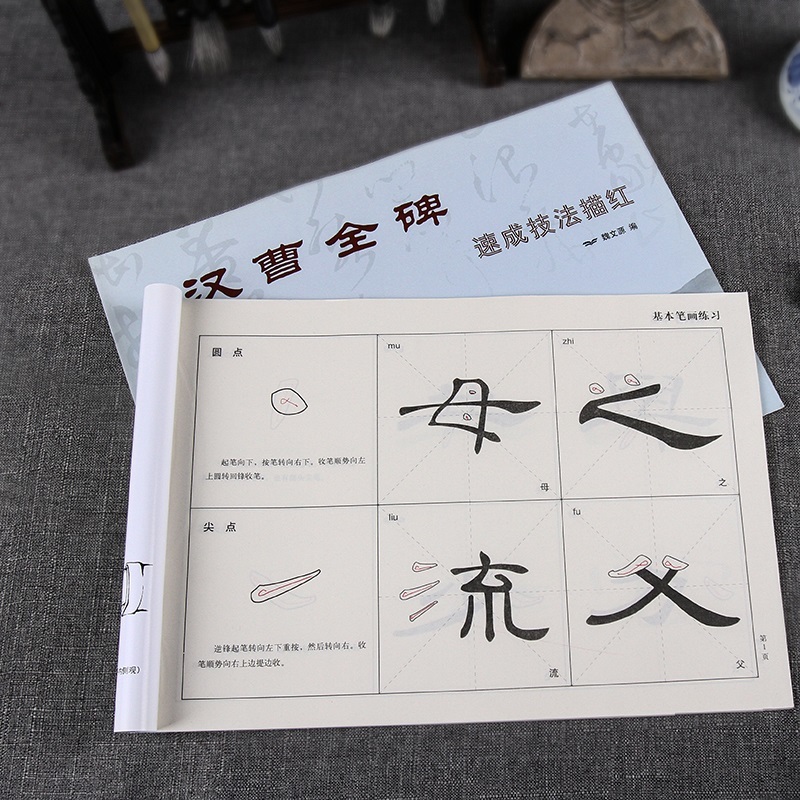 汉曹全碑
速成技法描红
魏文源 编
基本笔画练习
圆 点
起笔向下，按笔转向右下。收笔顺势向左
上圆转回锋收笔。
mu
母
母
zhi
之
之
尖 点
逆锋起笔转向左下重按，然后转向右。收
笔顺势向右上边提边收。
liu
流
流
fu
父
父
第1页